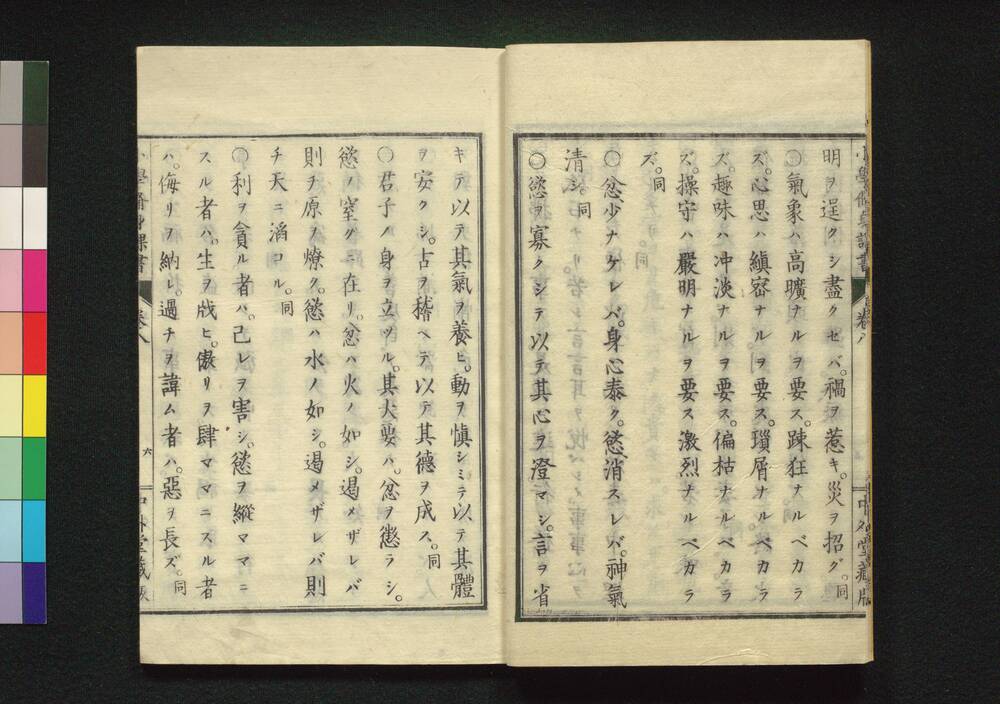 明ヲ逞クシ盡クセバ。禍ヲ惹キ。災ヲ招グ。同
〇氣象ハ高曠ナルヲ要ス。踈狂ナルベカラ
ズ。心思ハ縝宻ナルヲ要ス。瑣屑ナルベカラ
ズ。趣味ハ冲淡ナルヲ要ス。偏枯ナルベカラ
ズ。操守ハ嚴明ナルヲ要ス。激烈ナルベカラ
ズ。同
〇忿少ナケレバ。身心泰ク。慾消スレバ。神氣
清シ。同
〇慾ヲ寡クシテ以テ其心ヲ澄マシ。言ヲ省
キテ以テ其氣ヲ養ヒ。動ヲ愼シミテ以テ其體
ヲ安クシ。占ヲ稽ヘテ以テ其德ヲ成ス。同
〇君子ノ身ヲ立ツル。其大要ハ。忿ヲ懲ラシ。
慾ノ窒グニ在リ。忿ハ火ノ如シ。遏メザレバ
則チ原ヲ燎ク。慾ハ水ノ如シ。遏メザレバ則
チ天ニ滔コル。同
〇利ヲ貪ル者ハ。己レヲ害シ。慾ヲ縱ママニ
スル者ハ。生ヲ戕ヒ。傲リヲ肆ママニスル者
ハ。侮リヲ納レ。過チヲ諱ム者ハ。惡ヲ長ズ。同
小學脩身課書
卷八
六
中外堂藏版